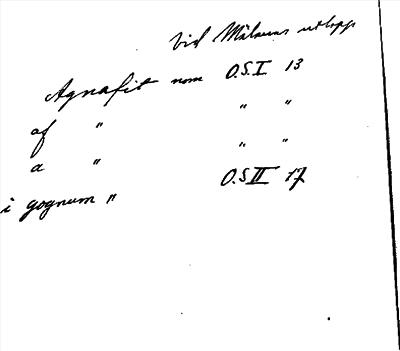 vid Mälarens utlopp
Agnafit nom O.S.I 13
af " " "
a " " "
i gognum " O.S II 17